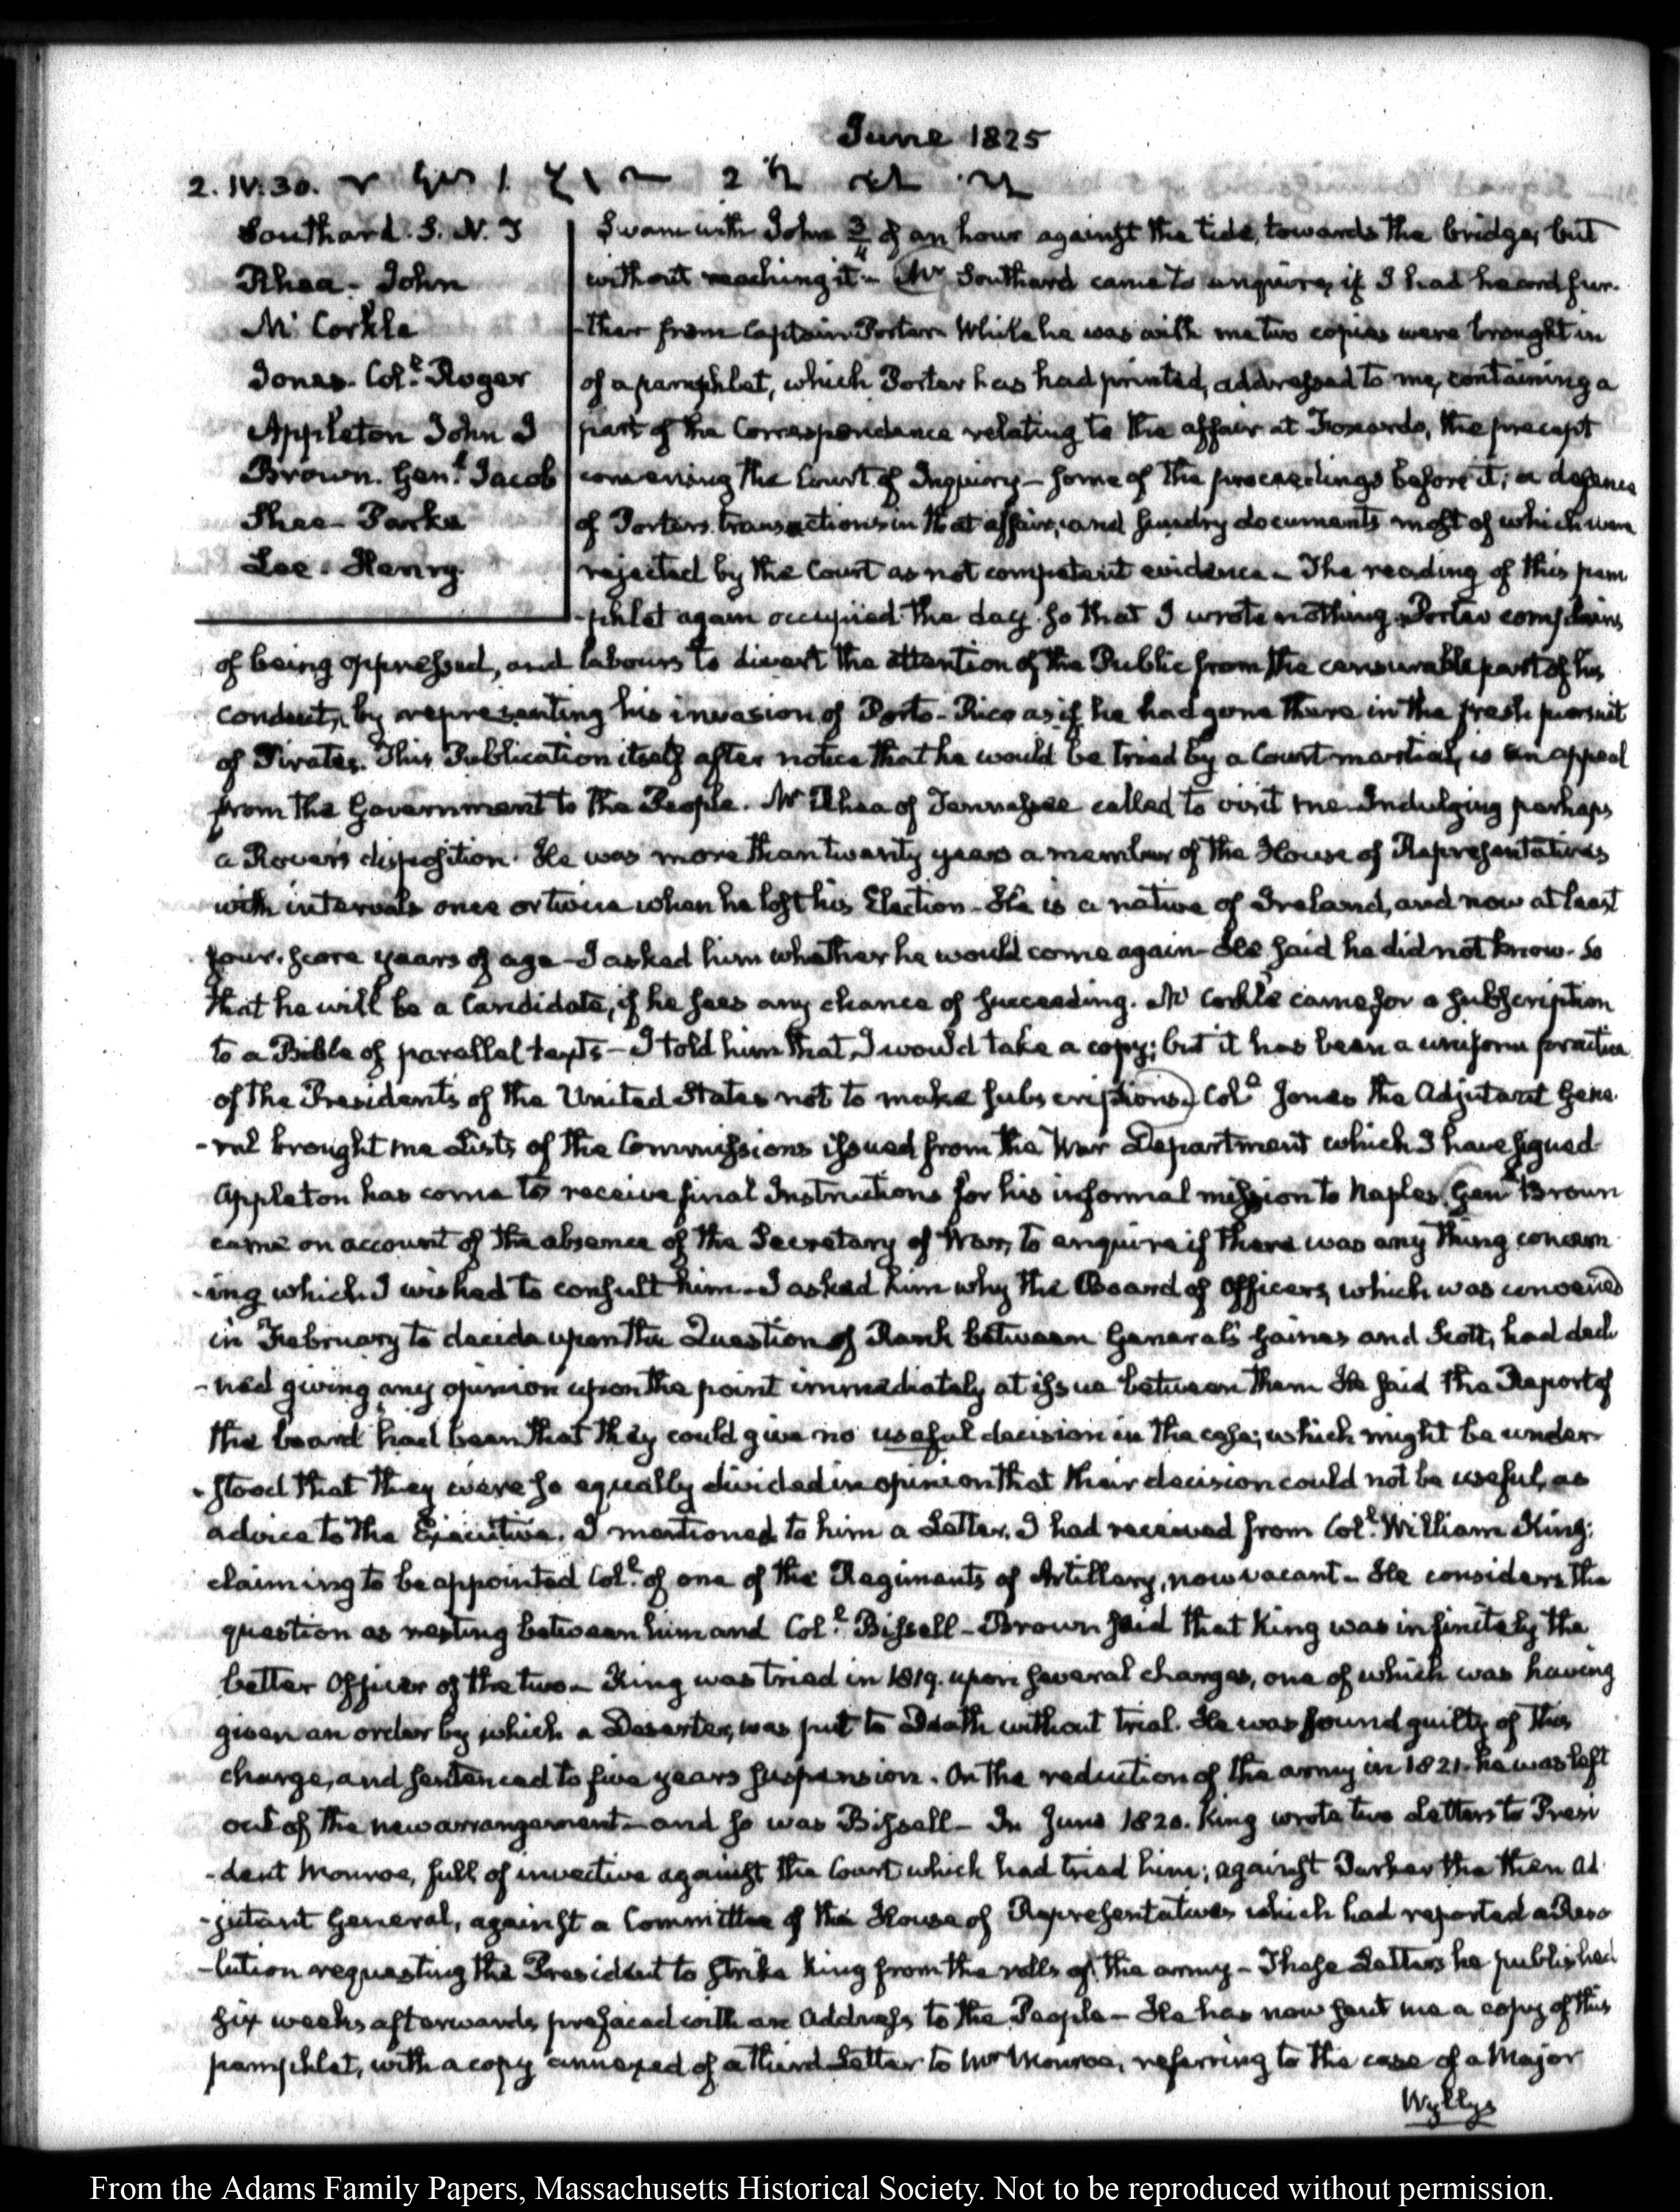 June 1825
2. IV:30.
Southard. S. N. J
Rhea - John
Mc Corkle
Jones. Col.l Roger
Appleton John J
Brown. Gen.l Jacob
Lee - Henry.
Swam with John 3/4 of an hour against the tide, towards the bridge, but
without reaching it - Mr Southard came to enquire, if I had heard fur-
-ther from Captain Porter. While he was with me two copies were brought in
of a pamphlet, which Porter has had printed, addressed to me, containing a
part of the Correspondence relating to the affair at Foxardo, the precept
convening the Court of Inquiry - some of the proceedings before it; a defence
of Porters transactions in that affair, and sundry documents most of which were
rejected by the Court as not competent evidence - The reading of this pam
-phlet again occupied the day so that I wrote nothing. Porter complains
of being oppressed, and labours to divert the attention of the Public from the censurable part of his
conduct, by representing his invasion of Porto-Rico as if he had gone there in the fresh pursuit
of Pirates. This Publication itself after notice that he would be tried by a Court martial, is an appeal
from the Government to the People. Mr Rhea of Tennessee called to visit me. Indulging perhaps
a Rover's disposition. He was more than twenty years a member of the House of Representatives
with intervals once or twice when he lost his Election - He is a native of Ireland, and now at least
four-score years of age - I asked him whether he would come again - He said he did not know. So
that he will be a Candidate, if he sees any chance of succeeding. Mc Corkle came for a subscription
to a Bible of parallel texts - I told him that I would take a copy; but it has been a uniform practice
of the Presidents of the United States not to make subscriptions. Col.l Jones the Adjutant Gene-
-ral brought me Lists of the Commissions issued from the War Department which I have signed
Appleton has come to receive final Instructions for his informal mission to Naples. Gen.l Brown
came on account of the absence of the Secretary of War, to enquire if there was any thing concern-
-ing which I wished to consult him - I asked him why the Board of Officers, which was convened
in February to decide upon the Question of Rank between Generals Gaines and Scott, had decli
-ned giving any opinion upon the point immediately at issue between them He said the Report of
the board had been that they could give no useful decision in the case; which might be under-
-stood that they were so equally divided in opinion that their decision could not be useful, as
advice to the Executive. I mentioned to him a Letter, I had received from Col.l William King;
claiming to be appointed Col.l of one of the Regiments of Artillery, now vacant - He considers the
question as resting between him and Col.l Bissell - Brown said that King was infinitely the
better Officer of the two - King was tried in 1819. upon several charges, one of which was having
given an order by which a Deserter, was put to Death without trial. He was found guilty of this
charge, and sentenced to five years suspension. On the reduction of the army in 1821. he was left
out of the new arrangement - and so was Bissell - In June 1820. King wrote two Letters to Presi
-dent Monroe, full of invective against the Court which had tried him; against Parker the then Ad-
-jutant General, against a Committee of the House of Representatives which had reported a Reso
-lution requesting the President to strike King from the rolls of the army - These Letters he published
six weeks afterwards, prefaced with an Address to the People - He has now sent me a copy of this
pamphlet, with a copy annexed of a third Letter to Mr Monroe, referring to the case of a Major
Wyllys
From the Adams Family Papers, Massachusetts Historical Society. Not to be reproduced without permission.